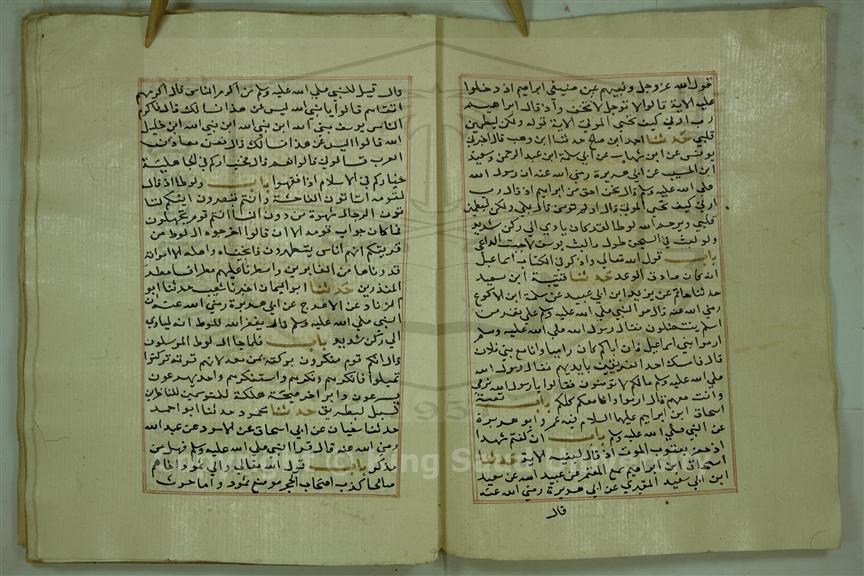 قول الله عز وجل ونبئهم عن ضيف ابراهيم اذ دخلوا
عليه الاية قالوا لا توجل لا تخف واذ قال ابراهيم
رب ارني كيف تحيي الموتى الاية قوله ولكن ليطمئن
قلبي حدثنا احمد ابن صالح حدثنا ابن وهب قال اخبرني
يونس عن ابن شهاب عن ابي سلمة ابن عبد الرحمن وسعيد
ابن المسيب عن ابي هريرة رضي الله عنه ان رسول الله
صلي الله عليه وسلم قال نحن احق من ابراهيم اذ قال رب
ارني كيف تحيي الموتى قال اولم تومن قال بلي ولكن ليطمئن
قلبي ويرحم الله لوطا لقد كان ياوي الي ركن شديد
ولو لبثت في السجن طول ما لبث يوسف لاجبت الداعي
باب قول الله تعالي واذكر في الكتاب اسماعيل
انه كان صادق الوعد حدثنا قتيبة ابن سعيد
حدثنا حاتم عن يزيد ابن ابي عبيد عن سلمة ابن الاكوع
رضي الله عنه قال مر النبي صلي الله عليه وسلم علي نفر من
اسلم ينتضلون فقال رسول الله صلي الله عليه وسلم
ارموا بني اسماعيل فان اباكم كان راميا وانا مع بني فلان
قال فامسك احد الفريقين بايديهم فقال رسول الله
صلي الله عليه وسلم مالكم لا ترمون فقالوا يا رسول الله نرمي
وانت معهم قال ارموا وانا معكم كلكم باب قصة
اسحاق ابن ابراهيم عليهما السلام فيه عمر وابو هريرة
عن النبي صلي الله عليه وسلم باب ام كنتم شهدا
اذ حضر يعقوب الموت اذ قال لبنيه الاية حدثنا
اسحاق ابن ابراهيم سمع المعتمر عن عبيد الله عن سعيد
ابن ابي سعيد المقبري عن ابي هريرة رضي الله عنه
قال
قال قيل للنبي صلي الله عليه وسلم من اكرم الناس قال اكرمهم
اتقاهم قالوا يا نبي الله ليس عن هذا نسالك قال فاكرم
الناس يوسف نبي الله ابن نبي الله ابن نبي الله ابن خليل
الله قالوا ليس عن هذا نسالك قال فعن معادن
العرب تسالوني قالوا نعم قال فخياركم في الجاهلية
خياركم في الاسلام اذا فقهوا باب ولوطا اذ قال
لقومه اتاتون الفاحشة وانتم تبصرون ائنكم لتا
تون الرجال شهوة من دون النسا بل انتم قوم تجهلون
فما كان جواب قومه الا ان قالوا اخرجوا ال لوط من
قريتكم انهم اناس يتطهرون فانجيناه واهله الا امراته
قدرناها من الغابرين وامطرنا عليهم مطرا فسا مطر
المنذرين حدثنا ابو اليمان اخبرنا شعيب حدثنا ابو
الزناد عن الاعرج عن ابي هريرة رضي الله عنه ان
النبي صلي الله عليه وسلم قال يغفر الله للوط انه لياوي
الي ركن شديد باب فلما جا ال لوط المرسلون
قال انكم قوم منكرون بركنه بمن معه لانهم قوته تركنوا
تميلوا فانكرهم ونكرهم واستنكرهم واحد يهرعون
يسرعون دابر اخر صيحة هلكة للمتوسمين للناظرين
لبسبيل لبطريق حدثنا محمود حدثنا ابو احمد
حدثنا سفيان عن ابي اسحاق عن الاسود عن عبد الله
رضي الله عنه قال قرا النبي صلي الله عليه وسلم فهل من
مدكر باب قول الله تعالي والي ثمود اخاهم
صالحا كذب اصحاب الحجر موضع ثمود واما حرث